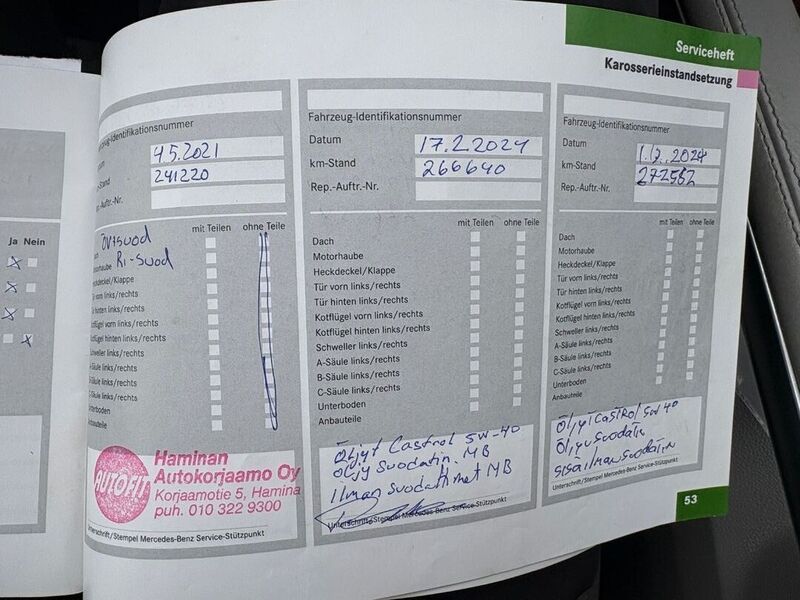 Serviceheft
Karosserieinstandsetzung
Ja Nein
Fahrzeug-Identifikationsnummer
4 5.2021
km-Stand
241220
Rep.-Auftr.-Nr.
mit Teilen ohne Teile
ÖV+suod
Motorhaube Ri-suod
Heckdeckel/Klappe
Tür vorn links/rechts
Tür hinten links/rechts
Kotflügel vorn links/rechts
Kotflügel hinten links/rechts
Schweller links/rechts
A-Säule links/rechts
B-Säule links/rechts
C-Säule links/rechts
Unterboden
Anbauteile
AUTOFIT
Haminan
Autokorjaamo Oy
Korjaamotie 5, Hamina
puh. 010 322 9300
Unterschrift/Stempel Mercedes-Benz Service-Stützpunkt
Fahrzeug-Identifikationsnummer
Datum 17.2.2024
km-Stand 266640
Rep.-Auftr.-Nr.
mit Teilen ohne Teile
Dach
Motorhaube
Heckdeckel/Klappe
Tür vorn links/rechts
Tür hinten links/rechts
Kotflügel vorn links/rechts
Kotflügel hinten links/rechts
Schweller links/rechts
A-Säule links/rechts
B-Säule links/rechts
C-Säule links/rechts
Unterboden
Anbauteile
Öljyt Castrol 5W-40
Öljy Suodatin. MB
Ilman suodattimet MB
Unterschrift/Stempel Mercedes-Benz Service-Stützpunkt
Fahrzeug-Identifikationsnummer
Datum
km-Stand 272552
Rep.-Auftr.-Nr.
mit Teilen ohne Teile
Dach
Motorhaube
Heckdeckel/Klappe
Tür vorn links/rechts
Tür hinten links/rechts
Kotflügel vorn links/rechts
Kotflügel hinten links/rechts
Schweller links/rechts
A-Säule links/rechts
B-Säule links/rechts
C-Säule links/rechts
Unterboden
Anbauteile
Öljyt Castrol 5w 40
Öljyn suodatin
sisäilmansuodatin
Unterschrift/Stempel Mercedes-Benz Service-Stützpunkt
53